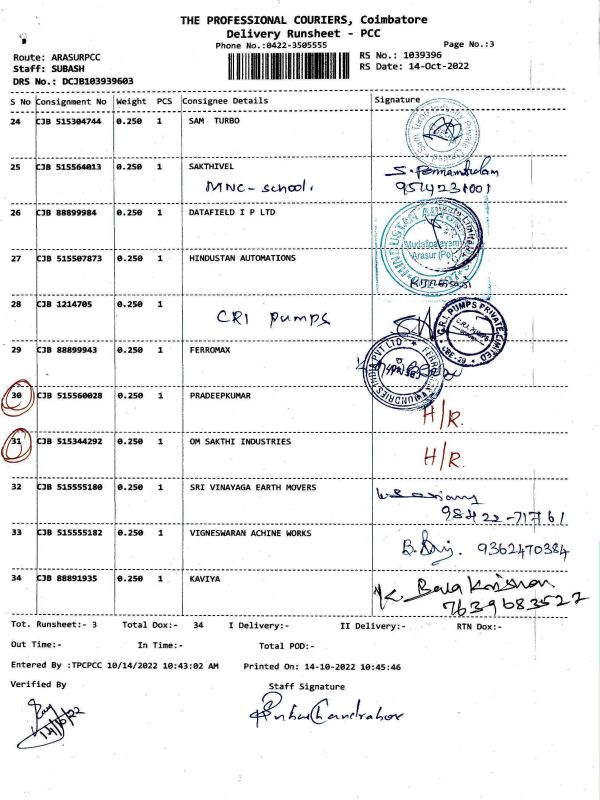 THE PROFESSIONAL COURIERS, Coimbatore
Delivery Runsheet - PCC
Phone No.:0422-3505555
Page No.:3
Route: ARASURPCC
RS No.: 1039396
Staff: SUBASH
RS Date: 14-Oct-2022
DRS No.: DCJB103939603
S No Consignment No Weight PCS Consignee Details Signature
24 CJB 515304744 0.250 1 SAM TURBO
25 CJB 515564013 0.250 1 SAKTHIVEL
MNC-School.
9514231001
26 CJB 88899984 0.250 1 DATAFIELD I P LTD
27 CJB 515507873 0.250 1 HINDUSTAN AUTOMATIONS
Mudalipalayam
Arasur (Po)
28 CJB 1214705 0.250 1
CRI Pumps
C.R.I. PUMPS PRIVATE LIMITED
29 CJB 88899943 0.250 1 FERROMAX
30 CJB 515560028 0.250 1 PRADEEPKUMAR
H/R.
31 CJB 515344292 0.250 1 OM SAKTHI INDUSTRIES
H/R.
32 CJB 515555180 0.250 1 SRI VINAYAGA EARTH MOVERS
98422-71761
33 CJB 515555182 0.250 1 VIGNESWARAN ACHINE WORKS
9362470384
34 CJB 88891935 0.250 1 KAVIYA
K. Bala Krishnan
7639683527
Tot. Runsheet:- 3 Total Dox:- 34 I Delivery:- II Delivery:- RTN Dox:-
Out Time:- In Time:- Total POD:-
Entered By :TPCPCC 10/14/2022 10:43:02 AM Printed On: 14-10-2022 10:45:46
Verified By Staff Signature